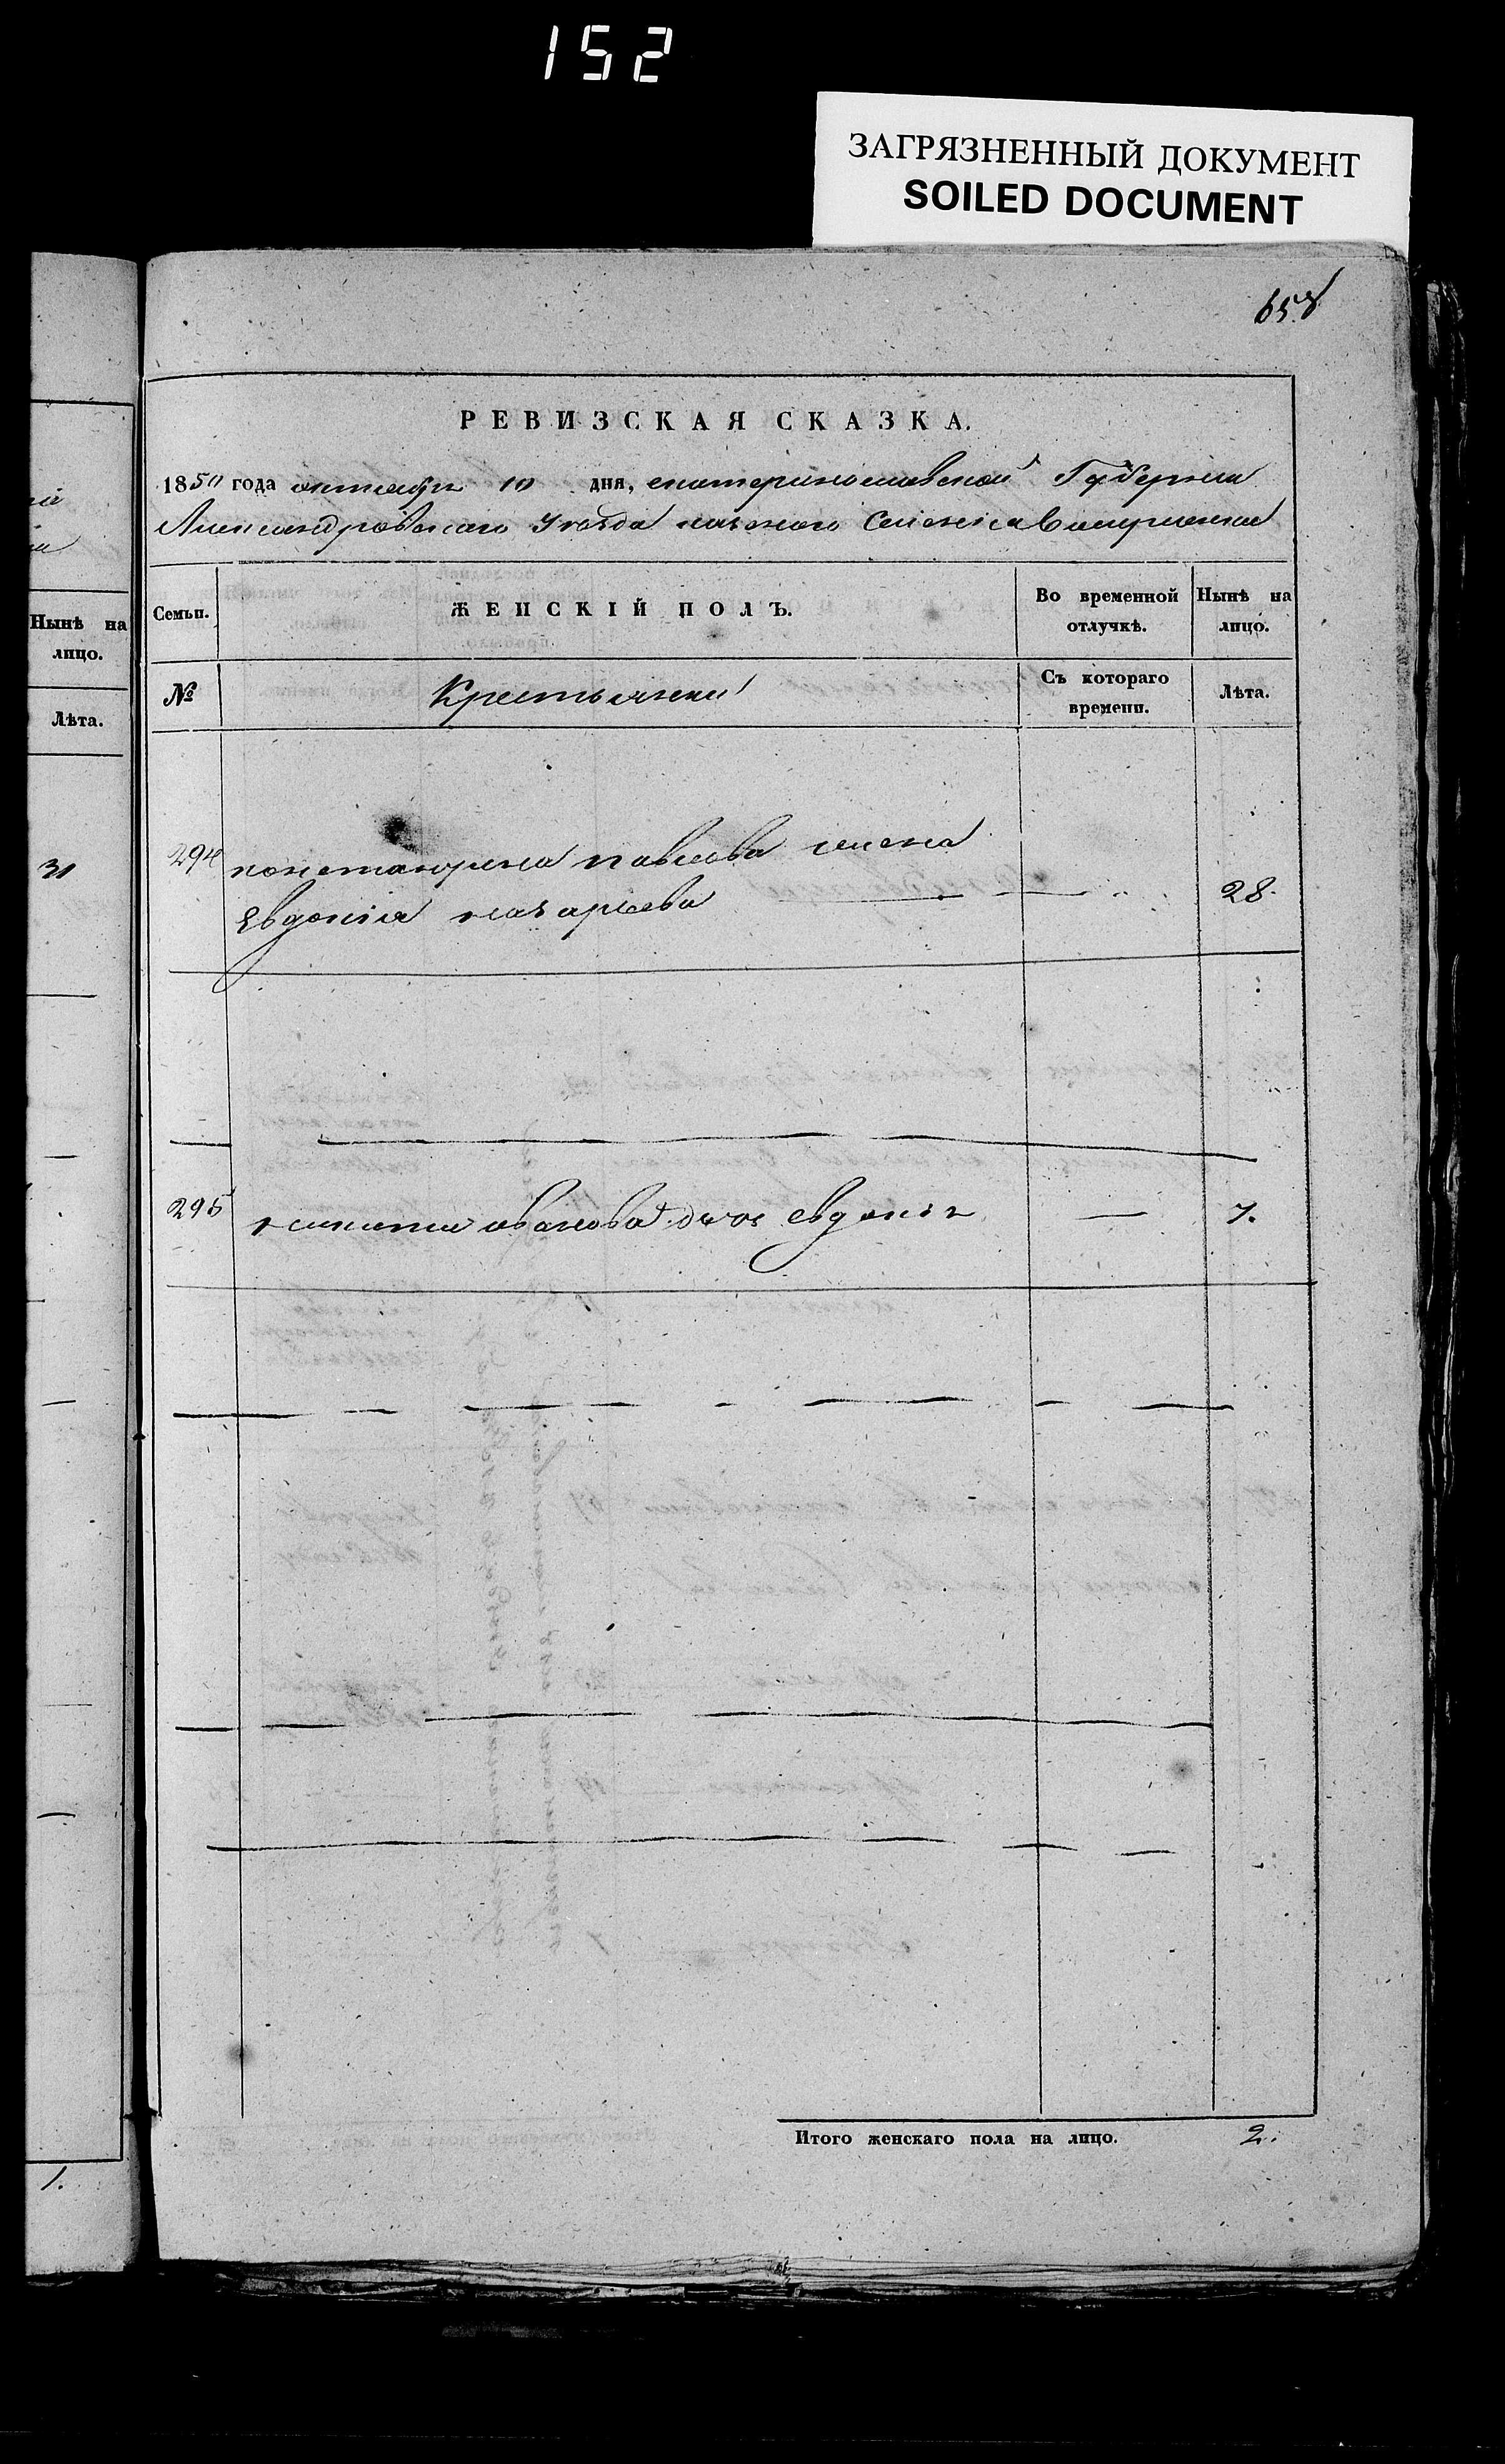 152
ЗАГРЯЗНЕННЫЙ ДОКУМЕНТ
SOILED DOCUMENT
658
РЕВИЗСКАЯ СКАЗКА.
1850 года октября 10 дня, екатеринославской Губернии
Александровского Уезда казеного Селенія
Семьи.
ЖЕНСКІЙ ПОЛЪ.
Во временной отлучкѣ.
Нынѣ на лицо.
№
Крестьянки
Съ котораго времени.
Лѣта.
294 константина павлова жена
Евдокія назарьева 28.
295 никиты иванова дочь евдокія — 7.
Итого женскаго пола на лицо. 2.
Нынѣ на
лицо.
Лѣта.
31
1.